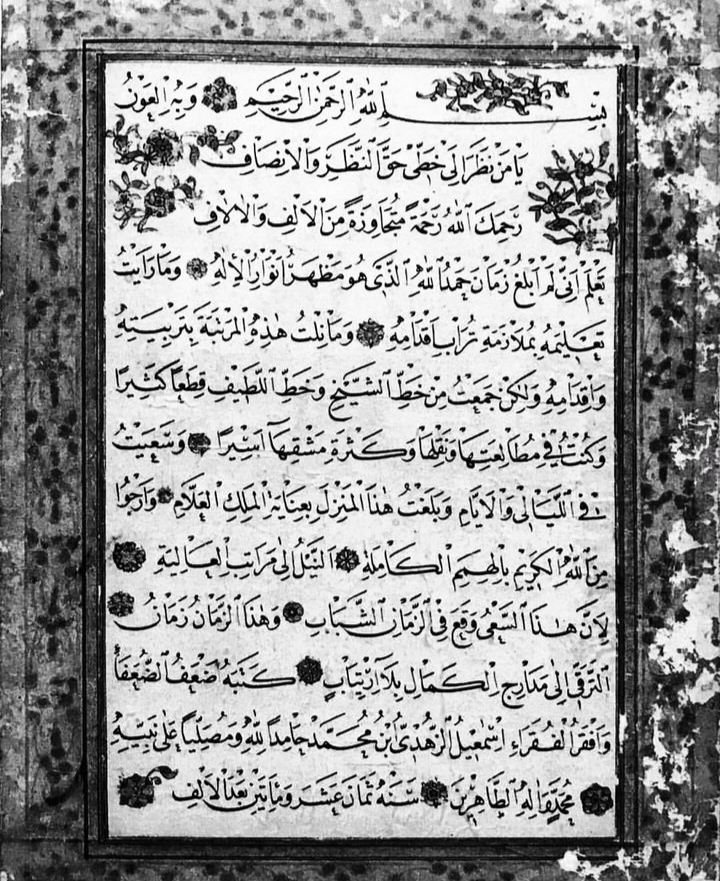 بِسْمِ اللهِ الرَّحْمٰنِ الرَّحِيْمِ وَبِهِ الْعَوْنُ
يَا مَنْ نَظَرَ اِلٰى خَطِّىْ حَقَّ النَّظَرِ وَالْاِنْصَافِ
رَحِمَكَ اللهُ رَحْمَةً مُتَجَاوِزَةً مِنَ الْاَلْفِ وَالْاٰلَافِ
تَعْلَمُ اَنِّىْ لَمْ اَبْلُغْ زَمَانَ حَمْدُ اللهِ الَّذِىْ هُوَ مَظْهَرُ اَنْوَارِ الْاِلٰهِ وَمَا رَاَيْتُ
تَعْلِيْمَهُ بِمُلَازَمَةِ تُرَابِ اَقْدَامِهِ وَمَا نِلْتُ هٰذِهِ الْمَرْتَبَةَ بِتَرْبِيَتِهِ
وَاِقْدَامِهِ وَلٰكِنْ جَمَعْتُ مِنْ خَطِّ الشَّيْخِ وَخَطِّ اللَّطِيْفِ قِطَعًا كَثِيْرًا
وَكُنْتُ فِىْ مُطَالَعَتِهَا وَنَقْلِهَا وَكَثْرَةِ مَشْقِهَا اَسِيْرًا وَسَعَيْتُ
فِى اللَّيَالِىْ وَالْاَيَّامِ وَبَلَغْتُ هٰذَا الْمَنْزِلَ بِعِنَايَةِ الْمَلِكِ الْعَلَّامِ وَاَرْجُوْا
مِنَ اللهِ الْكَرِيْمِ بِالْهِمَمِ الْكَامِلَةِ النَّيْلَ اِلٰى مَرَاتِبِ الْعَالِيَةِ
لِاَنَّ هٰذَا السَّعْىَ وَقَعَ فِى الزَّمَانِ الشَّبَابِ وَهٰذَا الزَّمَانُ زَمَانُ
التَّرَقِّىْ اِلٰى مَدَارِجِ الْكَمَالِ بِلَا ارْتِيَابٍ كَتَبَهُ ضْعَفُ الضُّعَفَاءِ
وَاَفْقَرُ الْفُقَرَاءِ اِسْمٰعِيْلُ الزُّهْدِىُّ ابْنُ مُحَمَّدْ حَامِدًا لِلّٰهِ وَمُصَلِّيًا عَلٰى نَبِيِّهِ
مُحَمَّدٍ وَاٰلِهِ الطَّاهِرِيْنَ سَنَةَ ثَمَانَ عَشَرَ وَمِاَتَيْنِ بَعْدَ الْاَلْفِ